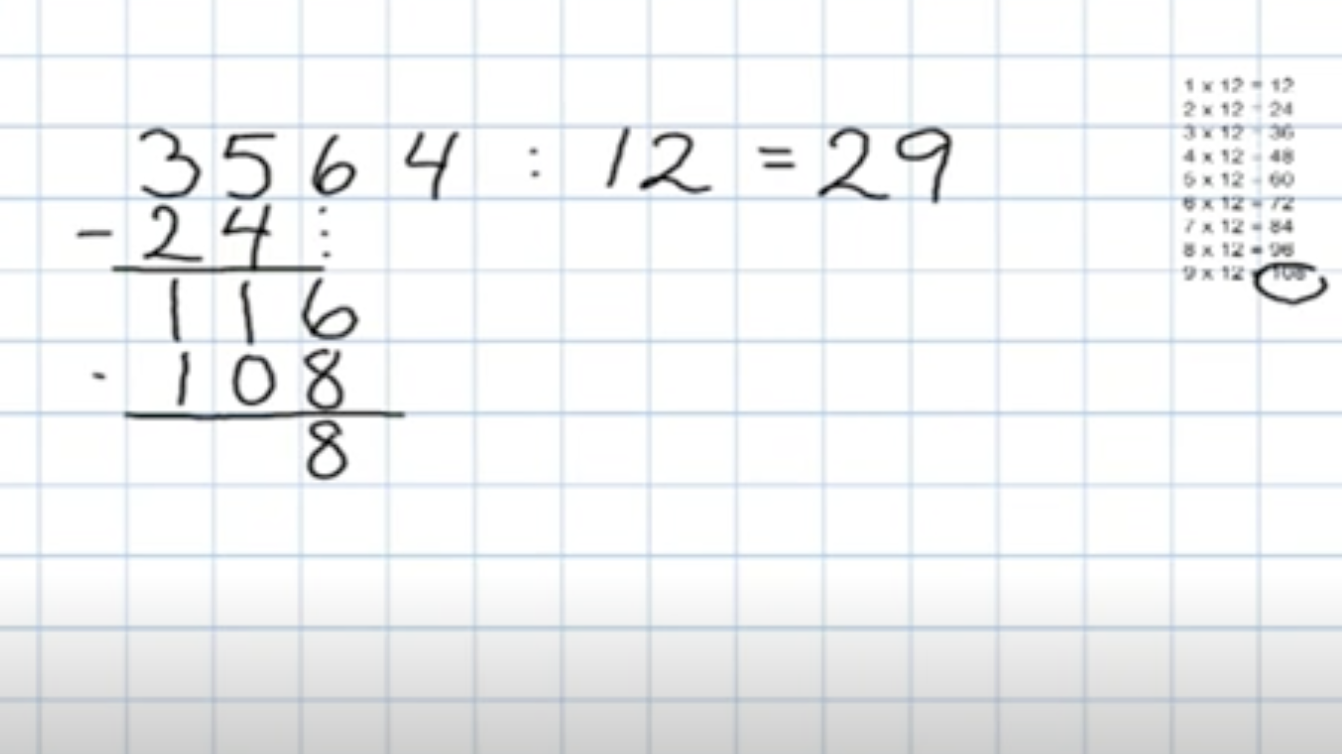 3564 : 12 = 29
- 24
116
- 108
8
1 x 12 = 12
2 x 12 = 24
3 x 12 = 36
4 x 12 = 48
5 x 12 = 60
6 x 12 = 72
7 x 12 = 84
8 x 12 = 96
9 x 12 = 108